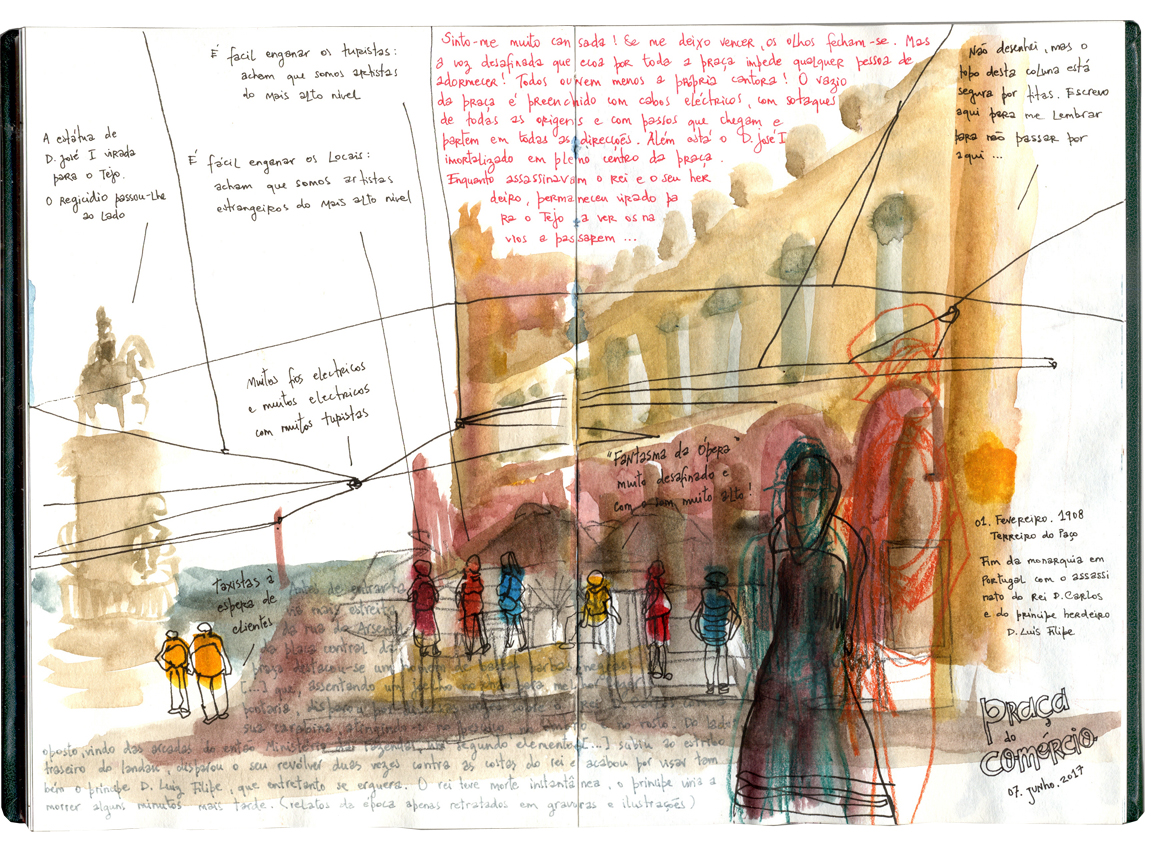 É facil enganar os turistas:
acham que somos artistas
do mais alto nível
A estátua de
D. José I virada
para o Tejo.
O Regicídio passou-lhe
ao lado
É fácil enganar os locais:
acham que somos artistas
estrangeiros do mais alto nível
Sinto-me muito cansada! Se me deixo vencer, os olhos fecham-se. Mas
a voz desafinada que ecoa por toda a praça impede qualquer pessoa de
adormecer! Todos ouvem menos a própria cantora! O vazio
da praça é preenchido com cabos eléctricos, com sotaques
de todas as origens e com passos que chegam e
partem em todas as direcções. Além está o D. José I
imortalizado em pleno centro da praça.
Enquanto assassinavam o rei e o seu her
deiro, permaneceu virado pa
ra o Tejo a ver os na
vios a passarem ...
Não desenhei, mas o
topo desta coluna está
segura por fitas. Escrevo
aqui para me lembrar
para não passar por
aqui ...
Muitos fios electricos
e muitos electricos
com muitos turistas
"Fantasma da Ópera"
muito desafinado e
com o som muito alto!
taxistas à
espera de
clientes
de entrar na
mais estreita
da rua do Arsenal
da placa central da
praça destacou-se um homem de barbas negras
[...] que, assentando um joelho
sua carabina, atingindo no rosto. Do lado
oposto, vindo das arcadas do então Ministério da Fazenda, um segundo elemento [...] subiu ao estribo
traseiro do landau, disparou o seu revólver duas vezes contra as costas do rei e acabou por visar tam
bém o príncipe D. Luis Filipe, que entretanto se erguera. O rei teve morte instantânea, o príncipe viria a
morrer alguns minutos mais tarde. (relatos da época apenas retratados em gravuras e ilustrações)
01. Fevereiro. 1908
Terreiro do Paço
Fim da monarquia em
Portugal com o assassi
nato do Rei D. Carlos
e do príncipe herdeiro
D. Luis Filipe
PRAÇA
do
COMÉRCIO.
07. junho. 2017